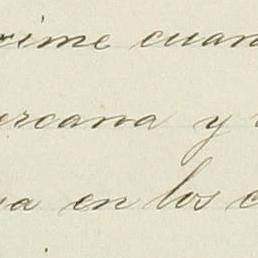 rime cuan
ercana y
a en los c